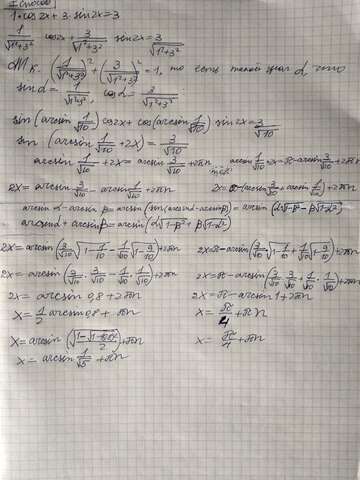 I способ
1·cos2x+3·sin2x=3
1/√(1²+3²) cos2x + 3/√(1²+3²) sin2x = 3/√(1²+3²)
Т.к. (1/√(1²+3²))² + (3/√(1²+3²))² = 1, то есть такой угол α, что
sinα = 1/√(1²+3²), cosα = 3/√(1²+3²)
sin(arcsin 1/√10) cos2x + cos(arcsin 1/√10) sin2x = 3/√10
sin(arcsin 1/√10 + 2x) = 3/√10
arcsin 1/√10 + 2x = arcsin 3/√10 + 2πn arcsin 1/√10 + 2x = π - arcsin 3/√10 + 2πn
2x = arcsin 3/√10 - arcsin 1/√10 + 2πn 2x = π-(arcsin 3/√10 + arcsin 1/√10) + 2πn
arcsinα - arcsinβ = arcsin(sin(arcsinα - arcsinβ)) = arcsin(α√(1-β²) - β√(1-α²))
arcsinα + arcsinβ = arcsin(α√(1-β²) + β√(1-α²))
2x = arcsin(3/√10 √(1 - 1/10) - 1/√10 √(1 - 9/10)) + 2πn 2x = π - arcsin(3/√10 √(1 - 1/10) + 1/√10 √(1 - 9/10)) + 2πn
2x = arcsin(3/√10 · 3/√10 - 1/√10 · 1/√10) + 2πn 2x = π - arcsin(3/√10 · 3/√10 + 1/√10 · 1/√10) + 2πn
2x = arcsin 0,8 + 2πn 2x = π - arcsin 1 + 2πn
x = 1/2 arcsin 0,8 + πn x = π/4 + πn
x = arcsin + πn x = π/4 + πn
x = arcsin 1/√5 + πn